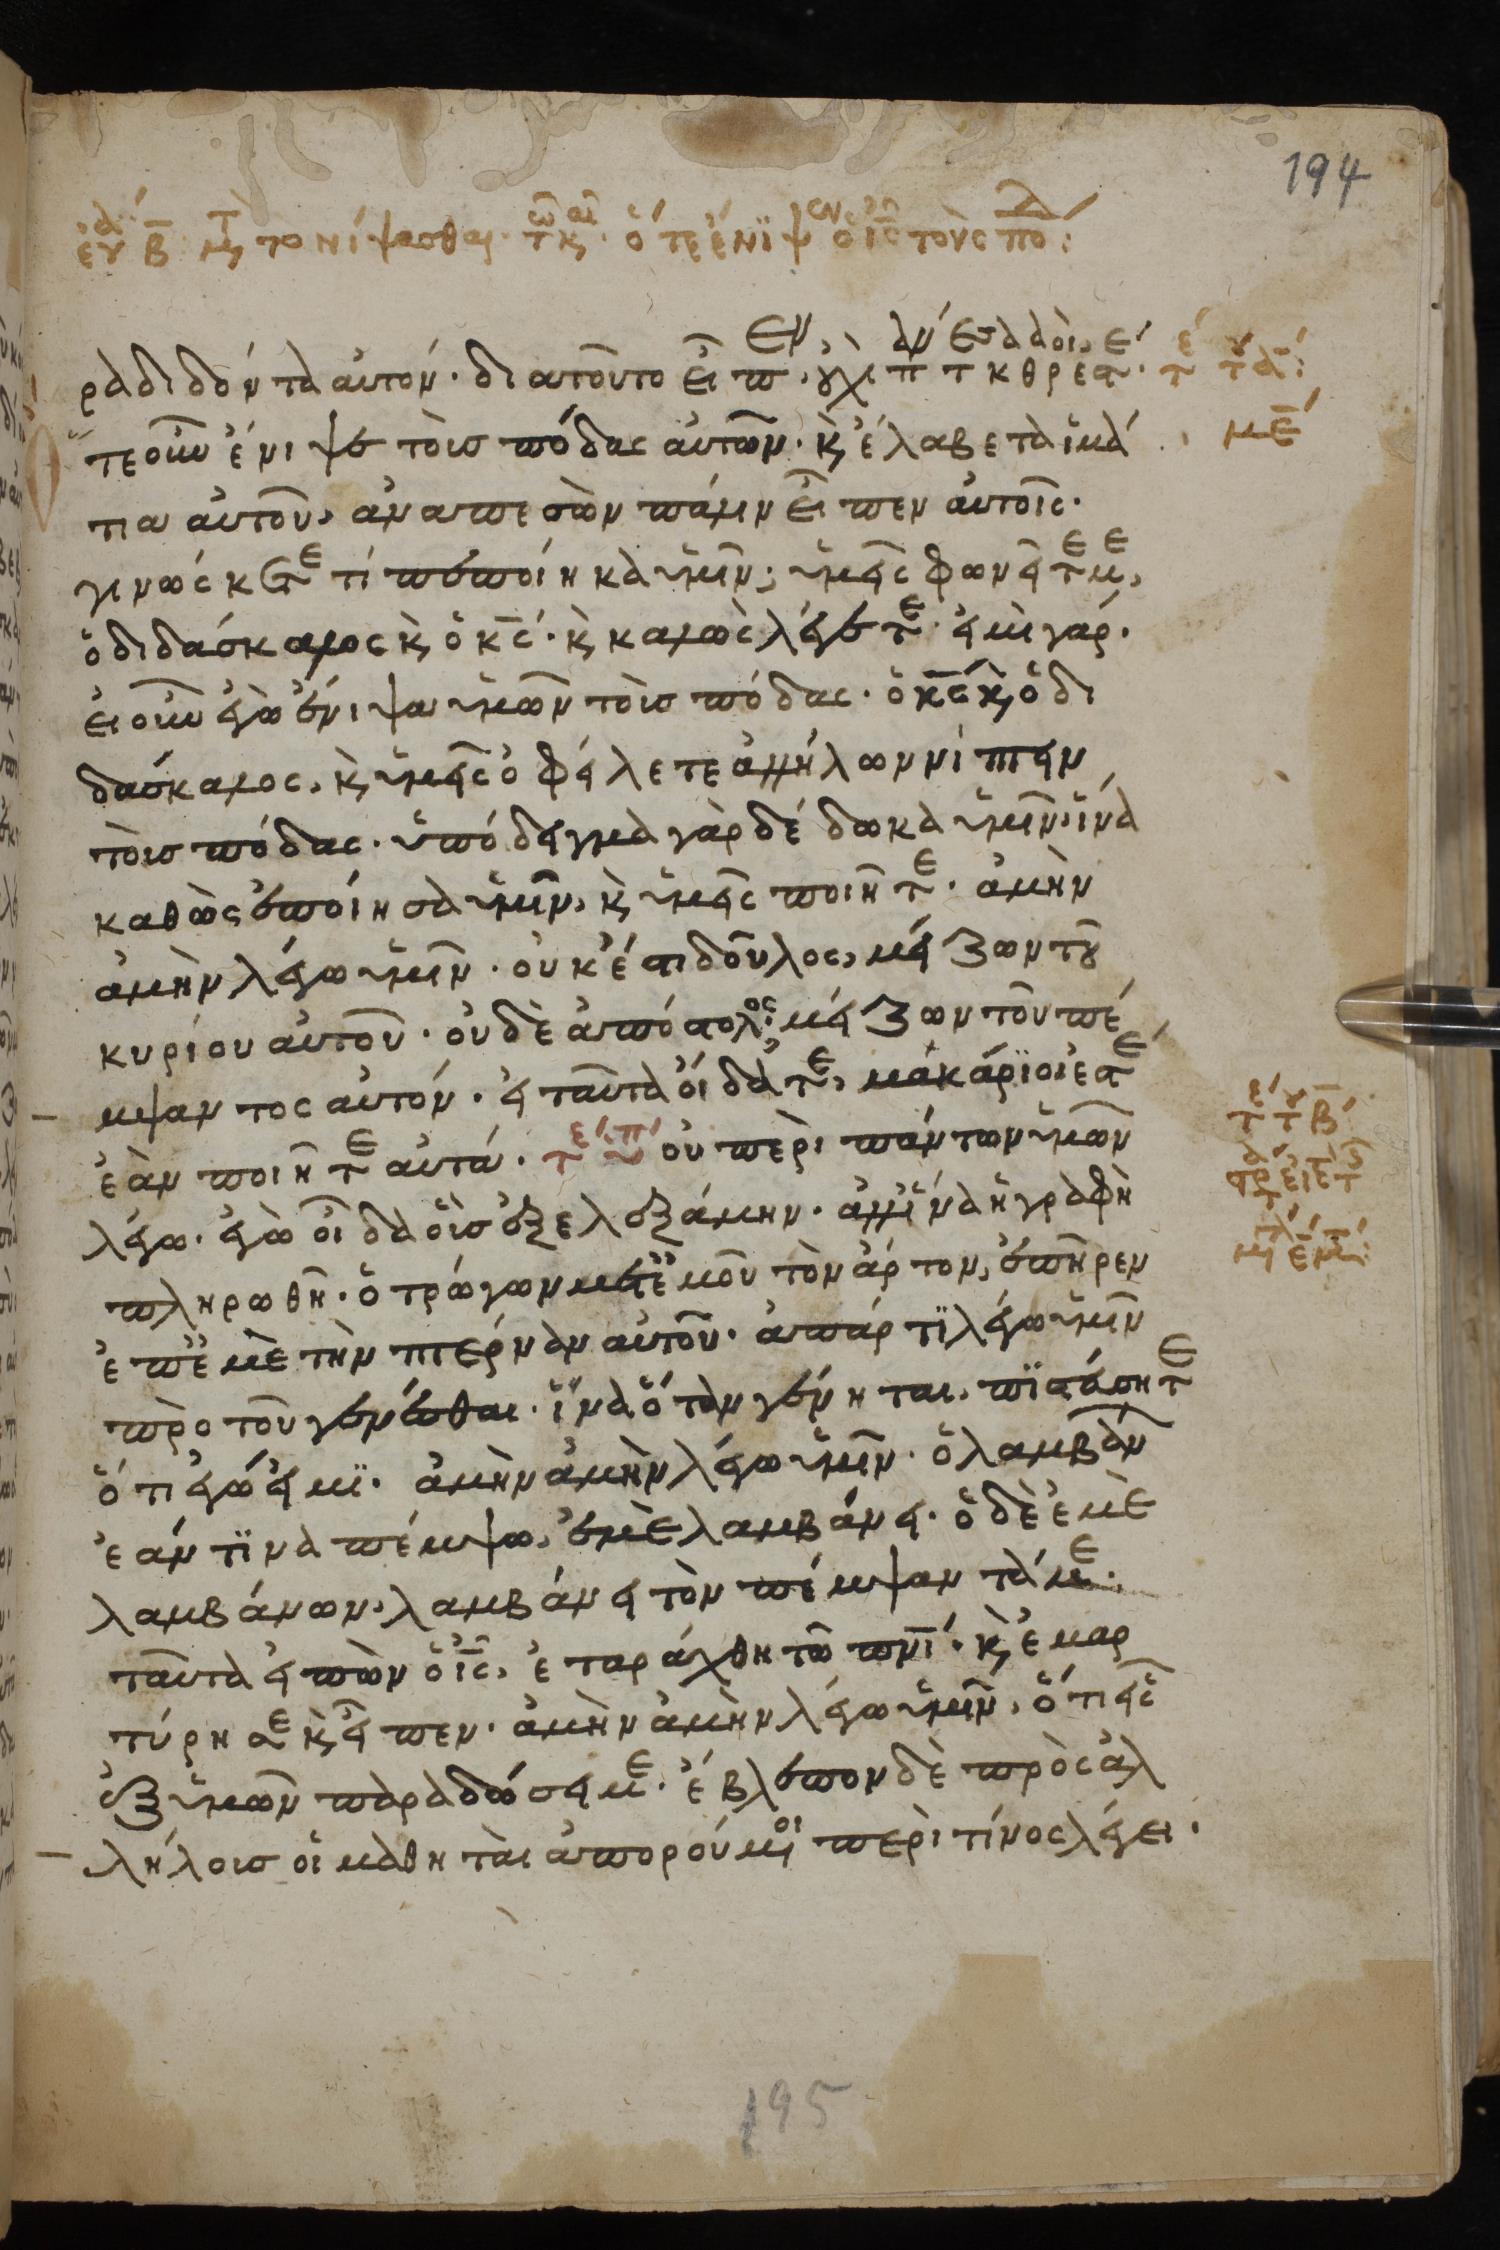 194
ραδιδόντα αὐτόν· διατοῦτο εἶπεν, οὐχὶ πάντες καθαροί ἐστε·
ὅτε οὖν ἔνιψε τοὺσ πόδας αὐτῶν· κ, ἔλαβε τὰ ἱμά
τια αὐτοῦ, ἀναπεσὼν πάλιν εἶπεν αὐτοῖς·
γινώσκετε τί πεποίηκα ὑμῖν; ὑμεῖς φωνεῖτέ με,
ὁ διδάσκαλος κ, ὁ κς· κ, καλῶς λέγετε· εἰμὶ γάρ·
εἰ οὖν ἐγὼ ἔνιψα ὑμῶν τοὺσ πόδας· ὁ κς κ, ὁ δι
δάσκαλος, κ, ὑμεῖς ὀφείλετε ἀλλήλων νίπτειν
τοὺσ πόδας· ὑπόδειγμα γὰρ δέδωκα ὑμῖν, ἵνα
καθὼς ἐποίησα ὑμῖν, κ, ὑμεῖς ποιῆτε· ἀμὴν
ἀμὴν λέγω ὑμῖν· οὐκ ἔστι δοῦλος, μείζων τοῦ
κυρίου αὐτοῦ· οὐδὲ ἀπόστολος, μείζων τοῦ πέ
μψαντος αὐτόν· εἰ ταῦτα οἴδατε, μακάριοί ἐστε
ἐὰν ποιῆτε αὐτά· οὐ περὶ πάντων ὑμῶν
λέγω· ἐγὼ οἶδα οὓσ ἐξελεξάμην· ἀλλ' ἵνα ἡ γραφὴ
πληρωθῇ· ὁ τρώγων μετ' ἐμοῦ τὸν ἄρτον, ἐπῆρεν
ἐπ' ἐμὲ τὴν πτέρναν αὐτοῦ· ἀπάρτι λέγω ὑμῖν
πρὸ τοῦ γενέσθαι· ἵνα ὅταν γένηται, πιστεύσητε
ὅτι ἐγώ εἰμι· ἀμὴν ἀμὴν λέγω ὑμῖν· ὁ λαμβάνων
ἐάν τινα πέμψω, ἐμὲ λαμβάνει· ὁ δὲ ἐμὲ
λαμβάνων, λαμβάνει τὸν πέμψαντά με·
ταῦτα εἰπὼν ὁ ις, ἐταράχθη τῷ πνι· κ, ἐμαρ
τύρησε κ, εἶπεν· ἀμὴν ἀμὴν λέγω ὑμῖν, ὅτι εἷς
ἐξ ὑμῶν παραδώσει με· ἔβλεπον δὲ πρὸς ἀλ
λήλουσ οἱ μαθηταὶ ἀπορούμενοι περὶ τίνος λέγει·
195